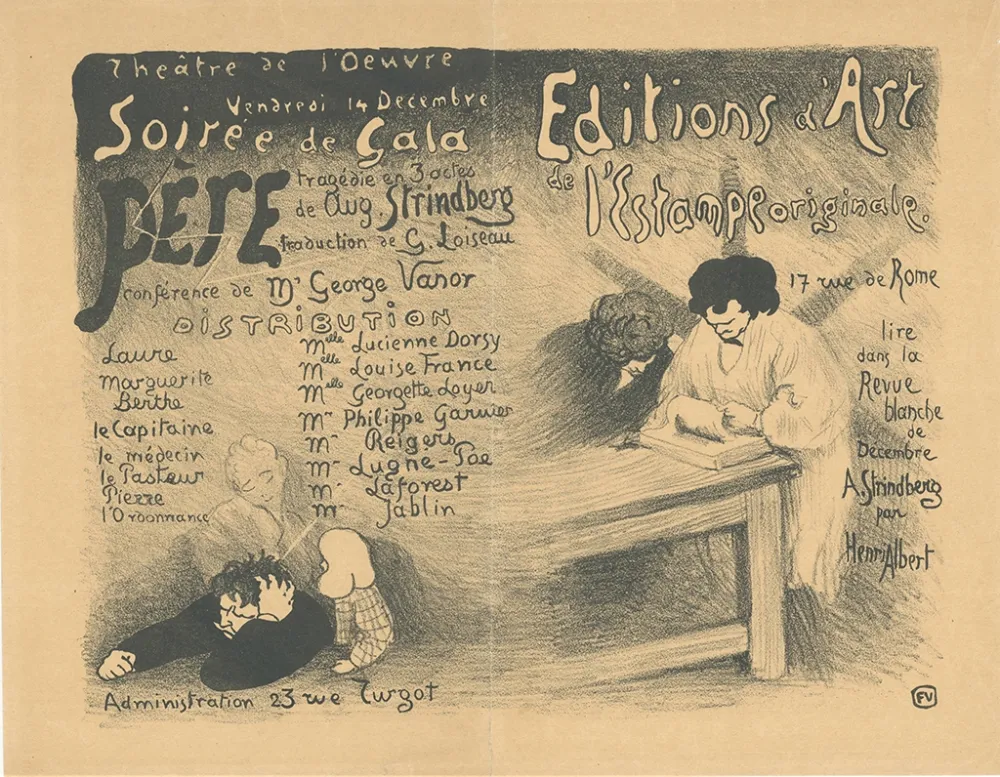 Theâtre de l'Oeuvre
Vendredi 14 Decembre
Soirée de Gala
PÈRE tragédie en 3 actes
de Aug. Strindberg
traduction de G. Loiseau
conférence de Mr George Vanor
DISTRIBUTION
Laure Melle Lucienne Dorsy
Marguerite Melle Louise France
Berthe Melle Georgette Loyer
le Capitaine Mr Philippe Garnier
le médecin Mr Reigers
le Pasteur Mr Lugne-Poe
Pierre Mr Laforest
l'Ordonnance Mr Jablin
Administration 23 rue Turgot
Editions d'Art
de l'Estampe originale.
17 rue de Rome
lire
dans la
Revue
blanche
de
Décembre
A. Strindberg
par
Henri Albert
FV